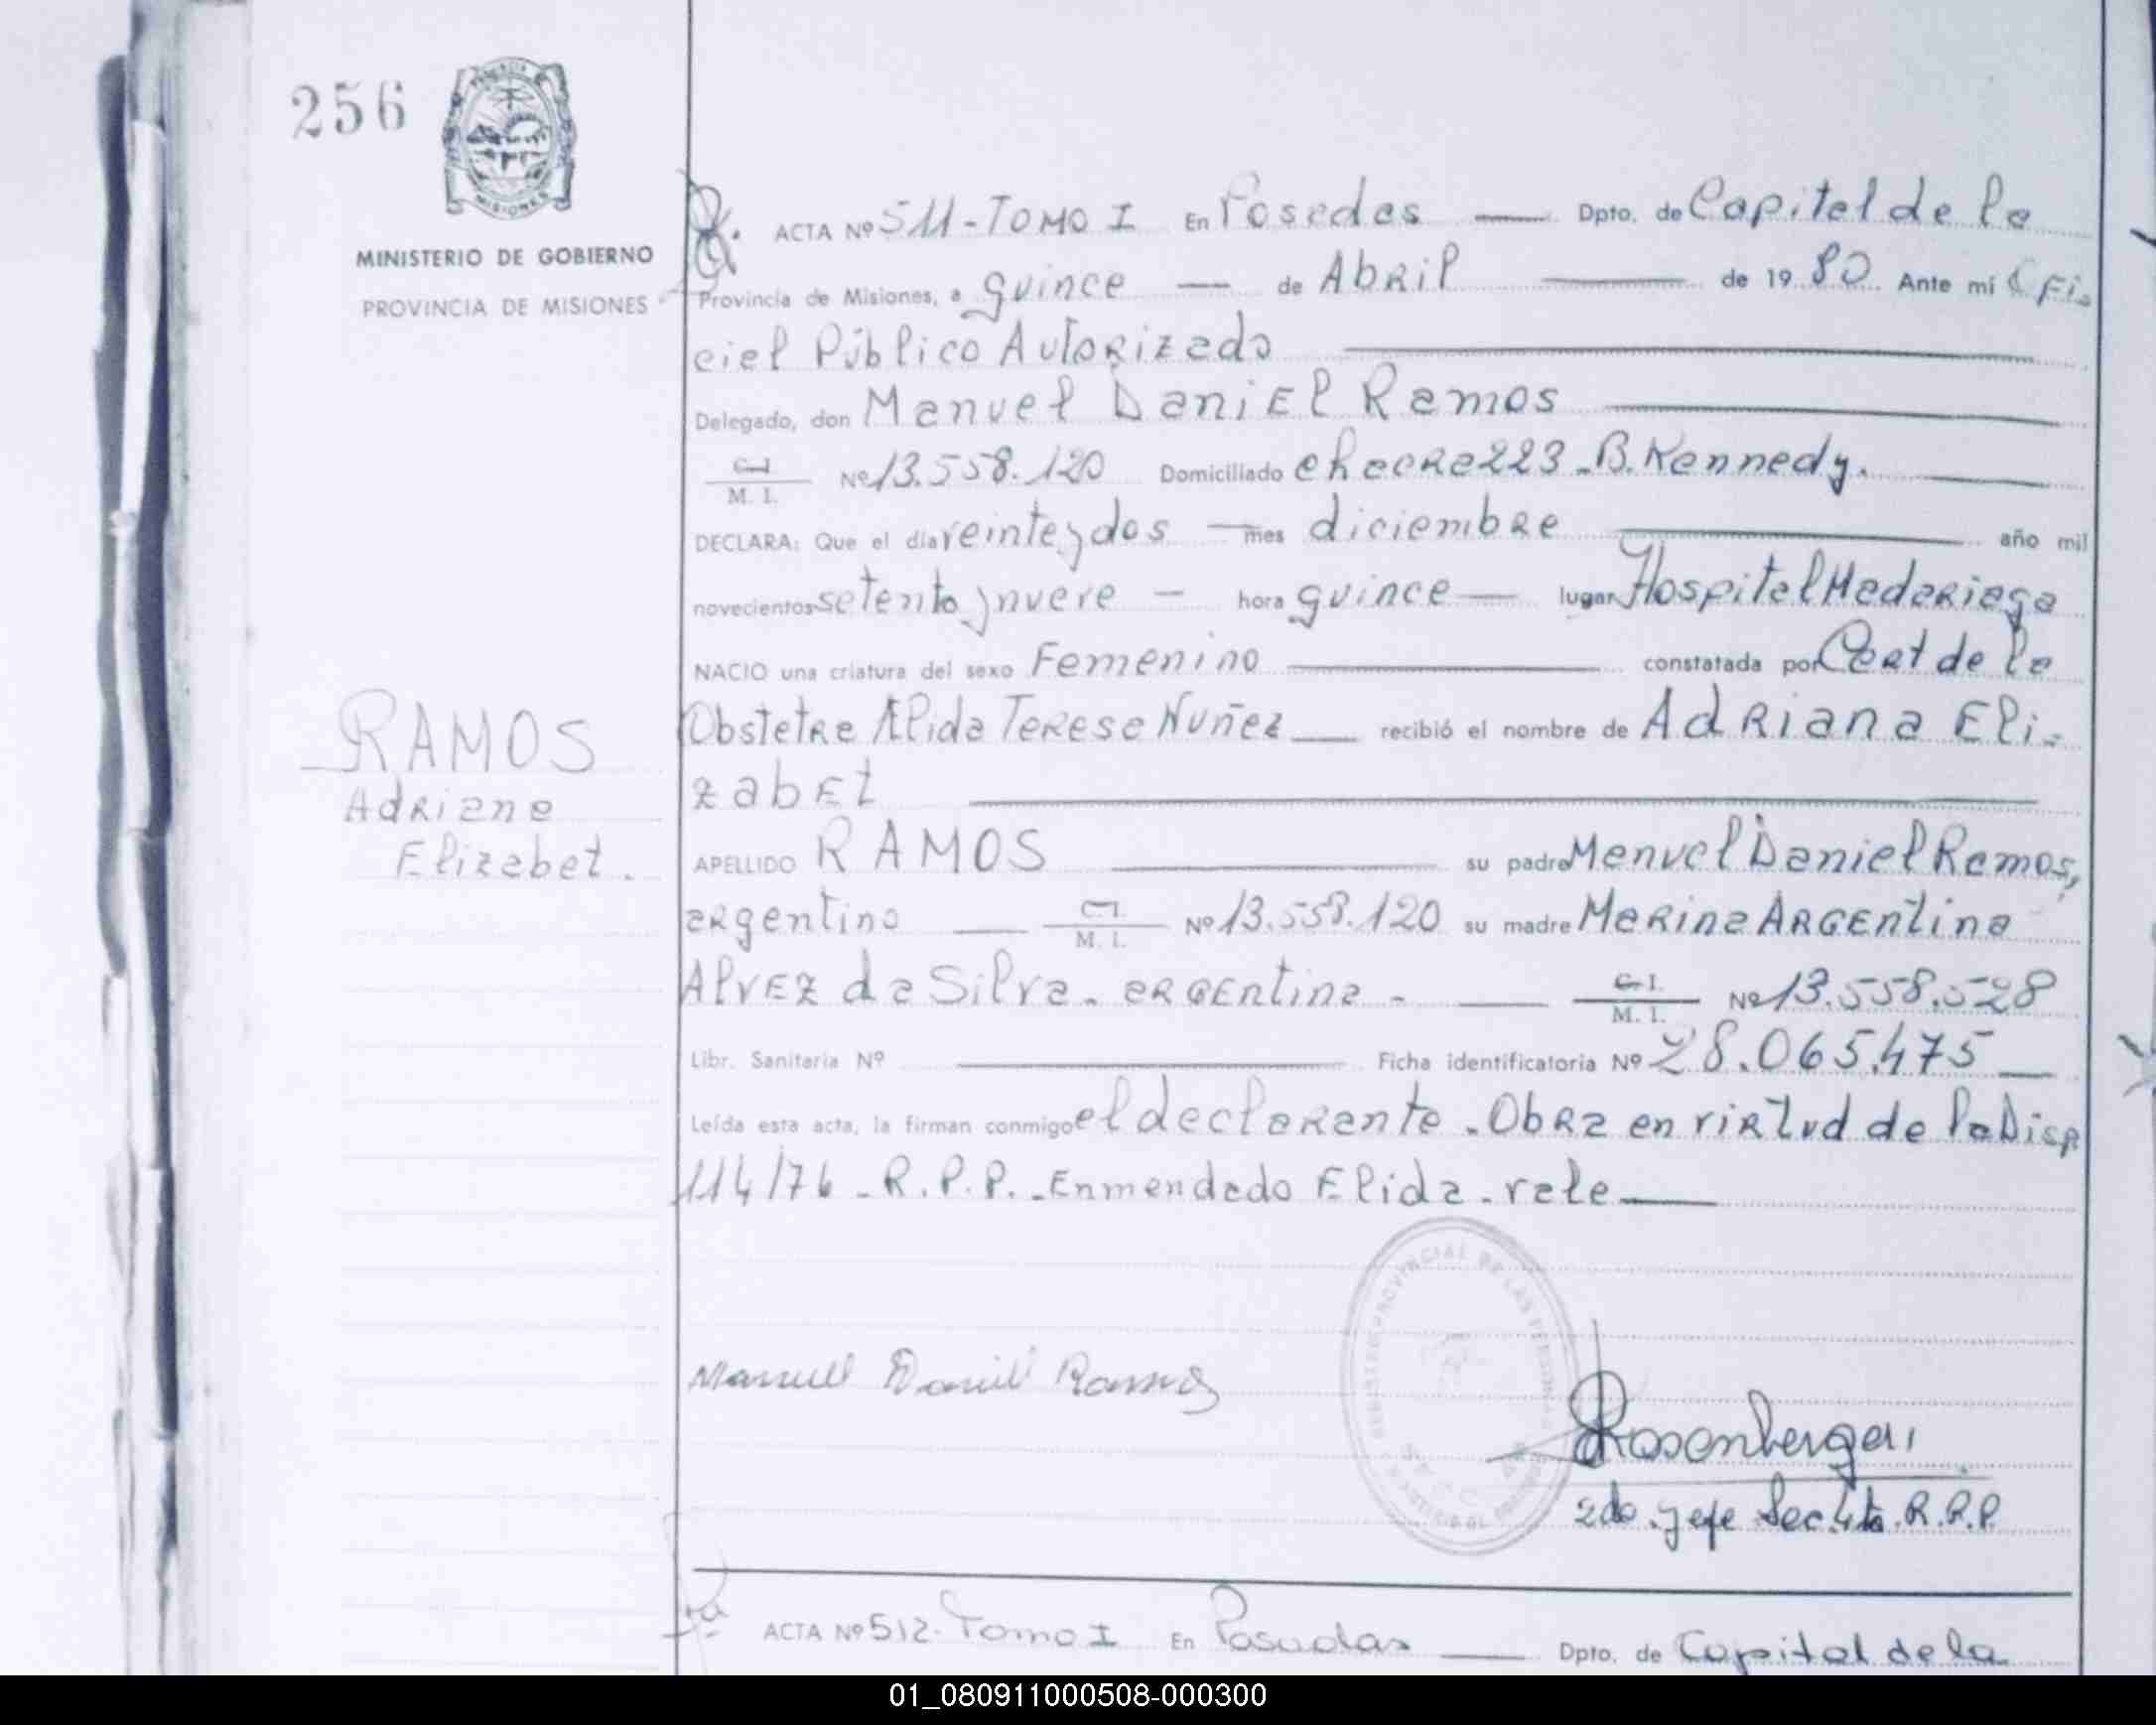 256
PROVINCIA
MISIONES
MINISTERIO DE GOBIERNO
PROVINCIA DE MISIONES
ACTA Nº 511-TOMO I En Posadas Dpto. de Capital de la
Provincia de Misiones, a quince de Abril de 1980 Ante mí Ofi-
cial Público Autorizado
Delegado, don Manuel Daniel Ramos
C.I. M. I. Nº 13.558.120 Domiciliado chacra 223 - B. Kennedy.
DECLARA: Que el día veinte y dos mes diciembre año mil
novecientos setenta y nueve hora quince lugar Hospital Madariaga
NACIO una criatura del sexo Femenino constatada por Cert de la
Obstetra Elida Teresa Nuñez recibió el nombre de Adriana Eli-
zabet
RAMOS
Adriana
Elizabet.
APELLIDO RAMOS su padre Manuel Daniel Ramos,
argentino C.I. M. I. Nº 13.558.120 su madre Marina Argentina
Alvez da Silva - argentina - C.I. M. I. Nº 13.558.528
Libr. Sanitaria Nº Ficha identificatoria Nº 28.065.475
Leída esta acta, la firman conmigo el declarante . Obra en virtud de la Disp
114/76 - R.P.P. - Enmendado Elida - vale
Manuel Daniel Ramos
Rosenberger
2do. Jefe Sec. 4ta. R.P.P.
ACTA Nº 512- Tomo I En Posadas Dpto. de Capital de la
01_080911000508-000300